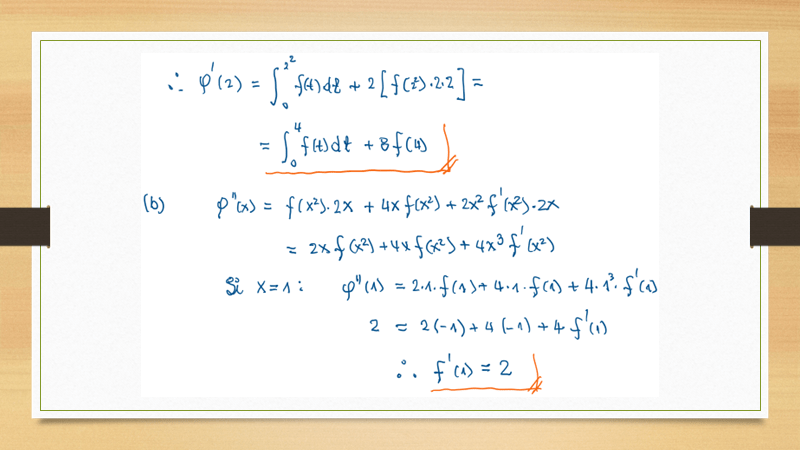 ∴ φ'(2) = ∫₀^{2²} f(t)dt + 2[f(2²)·2·2] =
= ∫₀⁴ f(t)dt + 8f(4)
(b) φ''(x) = f(x²)·2x + 4x f(x²) + 2x² f'(x²)·2x
= 2x f(x²) + 4x f(x²) + 4x³ f'(x²)
Si x=1: φ''(1) = 2·1·f(1) + 4·1·f(1) + 4·1³·f'(1)
2 = 2(-1) + 4(-1) + 4 f'(1)
∴ f'(1) = 2